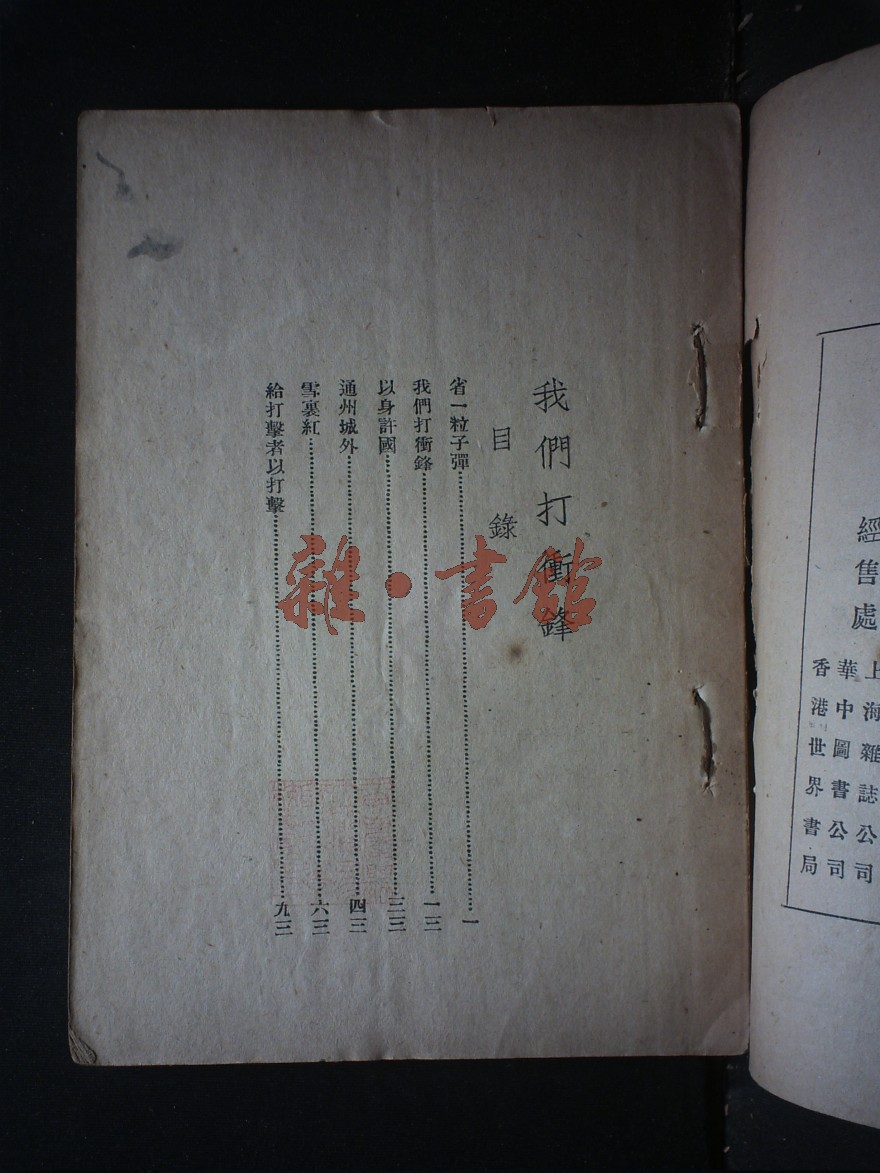 經售處
上海雜誌公司
華中圖書公司
香港世界書局
我們打衝鋒
目錄
省一粒子彈……一
我們打衝鋒……一三
以身許國……三三
通州城外……四三
雪裏紅……六三
給打擊者以打擊……九三
雜·書館